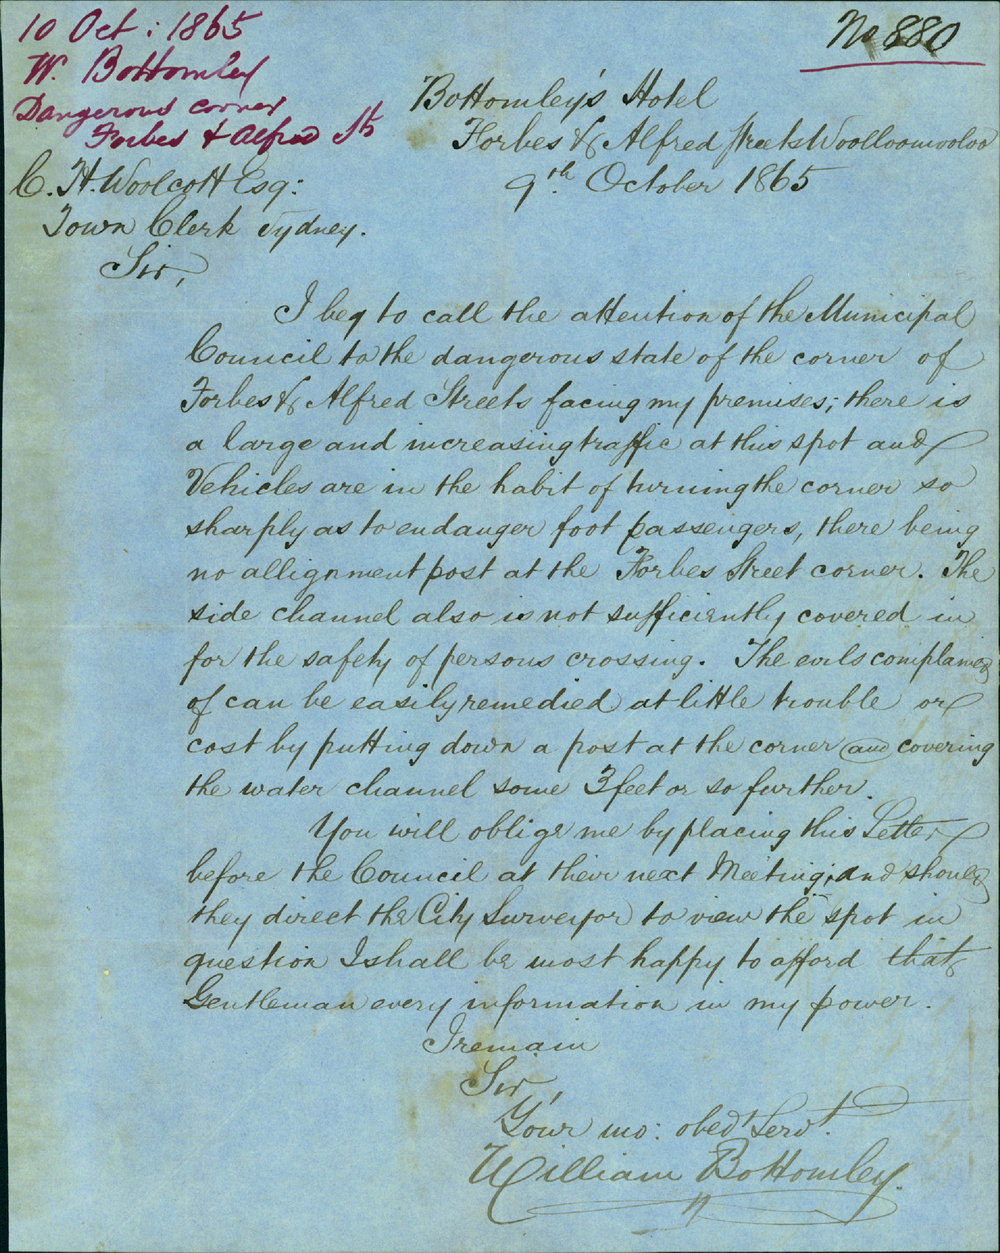 10 Oct: 1865
W. Bottomley
Dangerous corner
Forbes & Alfred Sts
No 880
Bottomley's Hotel
Forbes & Alfred Streets Woolloomooloo
9th October 1865
C. H. Woolcott Esq:
Town Clerk Sydney.
Sir,
I beg to call the attention of the Municipal
Council to the dangerous state of the corner of
Forbes & Alfred Streets facing my premises; there is
a large and increasing traffic at this spot and
Vehicles are in the habit of turning the corner so
sharply as to endanger foot passengers, there being
no allignment post at the Forbes Street corner. The
side channel also is not sufficiently covered in
for the safety of persons crossing. The evils complained
of can be easily remedied at little trouble or
cost by putting down a post at the corner and covering
the water channel some 3 feet or so further.
You will oblige me by placing this Letter
before the Council at their next Meeting; and should
they direct the City Surveyor to view the spot in
question I shall be most happy to afford that
Gentleman every information in my power.
I remain
Sir,
Your mo: obedt Servt.
William Bottomley.